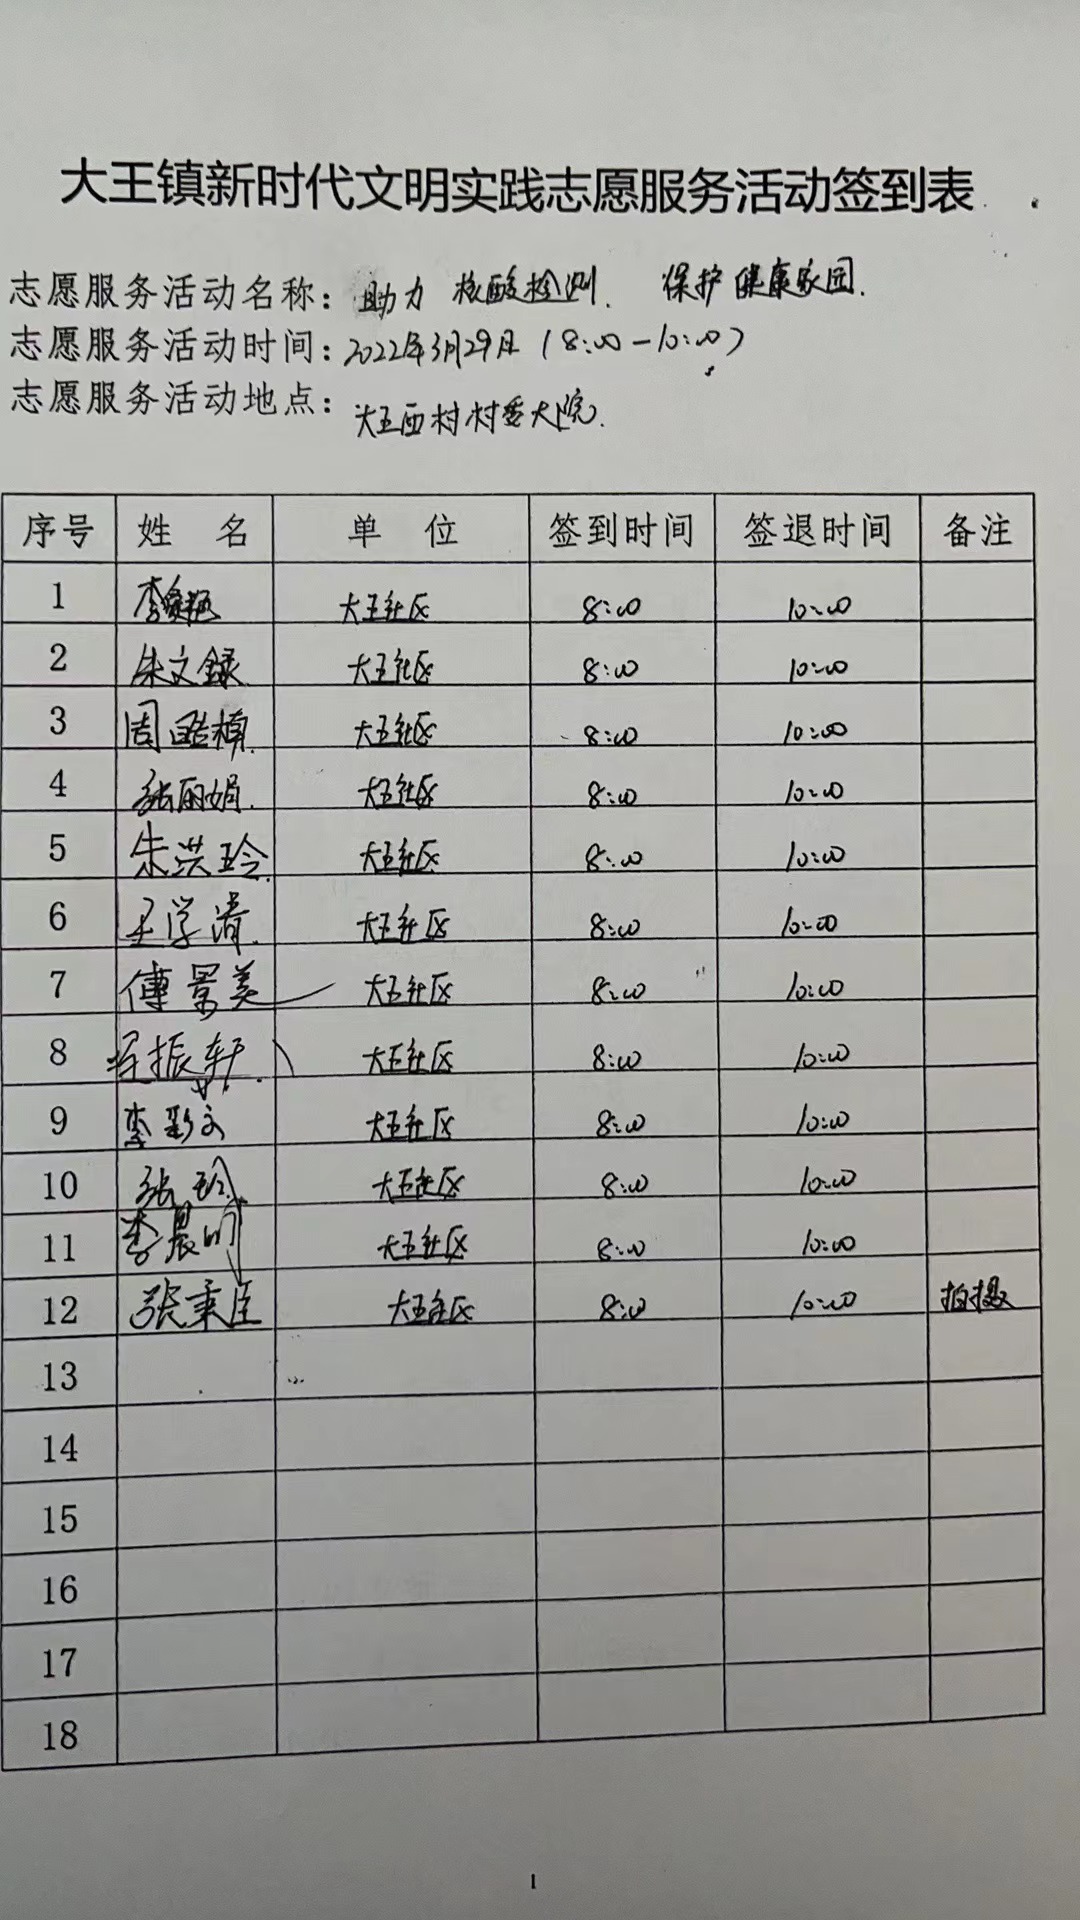 大王镇新时代文明实践志愿服务活动签到表
志愿服务活动名称：助力 核酸检测. 保护健康家园.
志愿服务活动时间：2022年3月29日（8:00-10:00）
志愿服务活动地点：大王西村村委大院.
序号 姓名 单位 签到时间 签退时间 备注
1 李 大王社区 8:00 10:00
2 朱文録 大王社区 8:00 10:00
3 周 大王社区 8:00 10:00
4 张丽娟. 大王社区 8:00 10:00
5 朱洪玲. 大王社区 8:00 10:00
6 王学清. 大王社区 8:00 10:00
7 傅景美 大王社区 8:00 10:00
8 振轩. 大王社区 8:00 10:00
9 李彩文 大王社区 8:00 10:00
10 张玲 大王社区 8:00 10:00
11 李晨明 大王社区 8:00 10:00
12 张秉臣 大王社区 8:00 10:00 拍摄
13
14
15
16
17
18
1